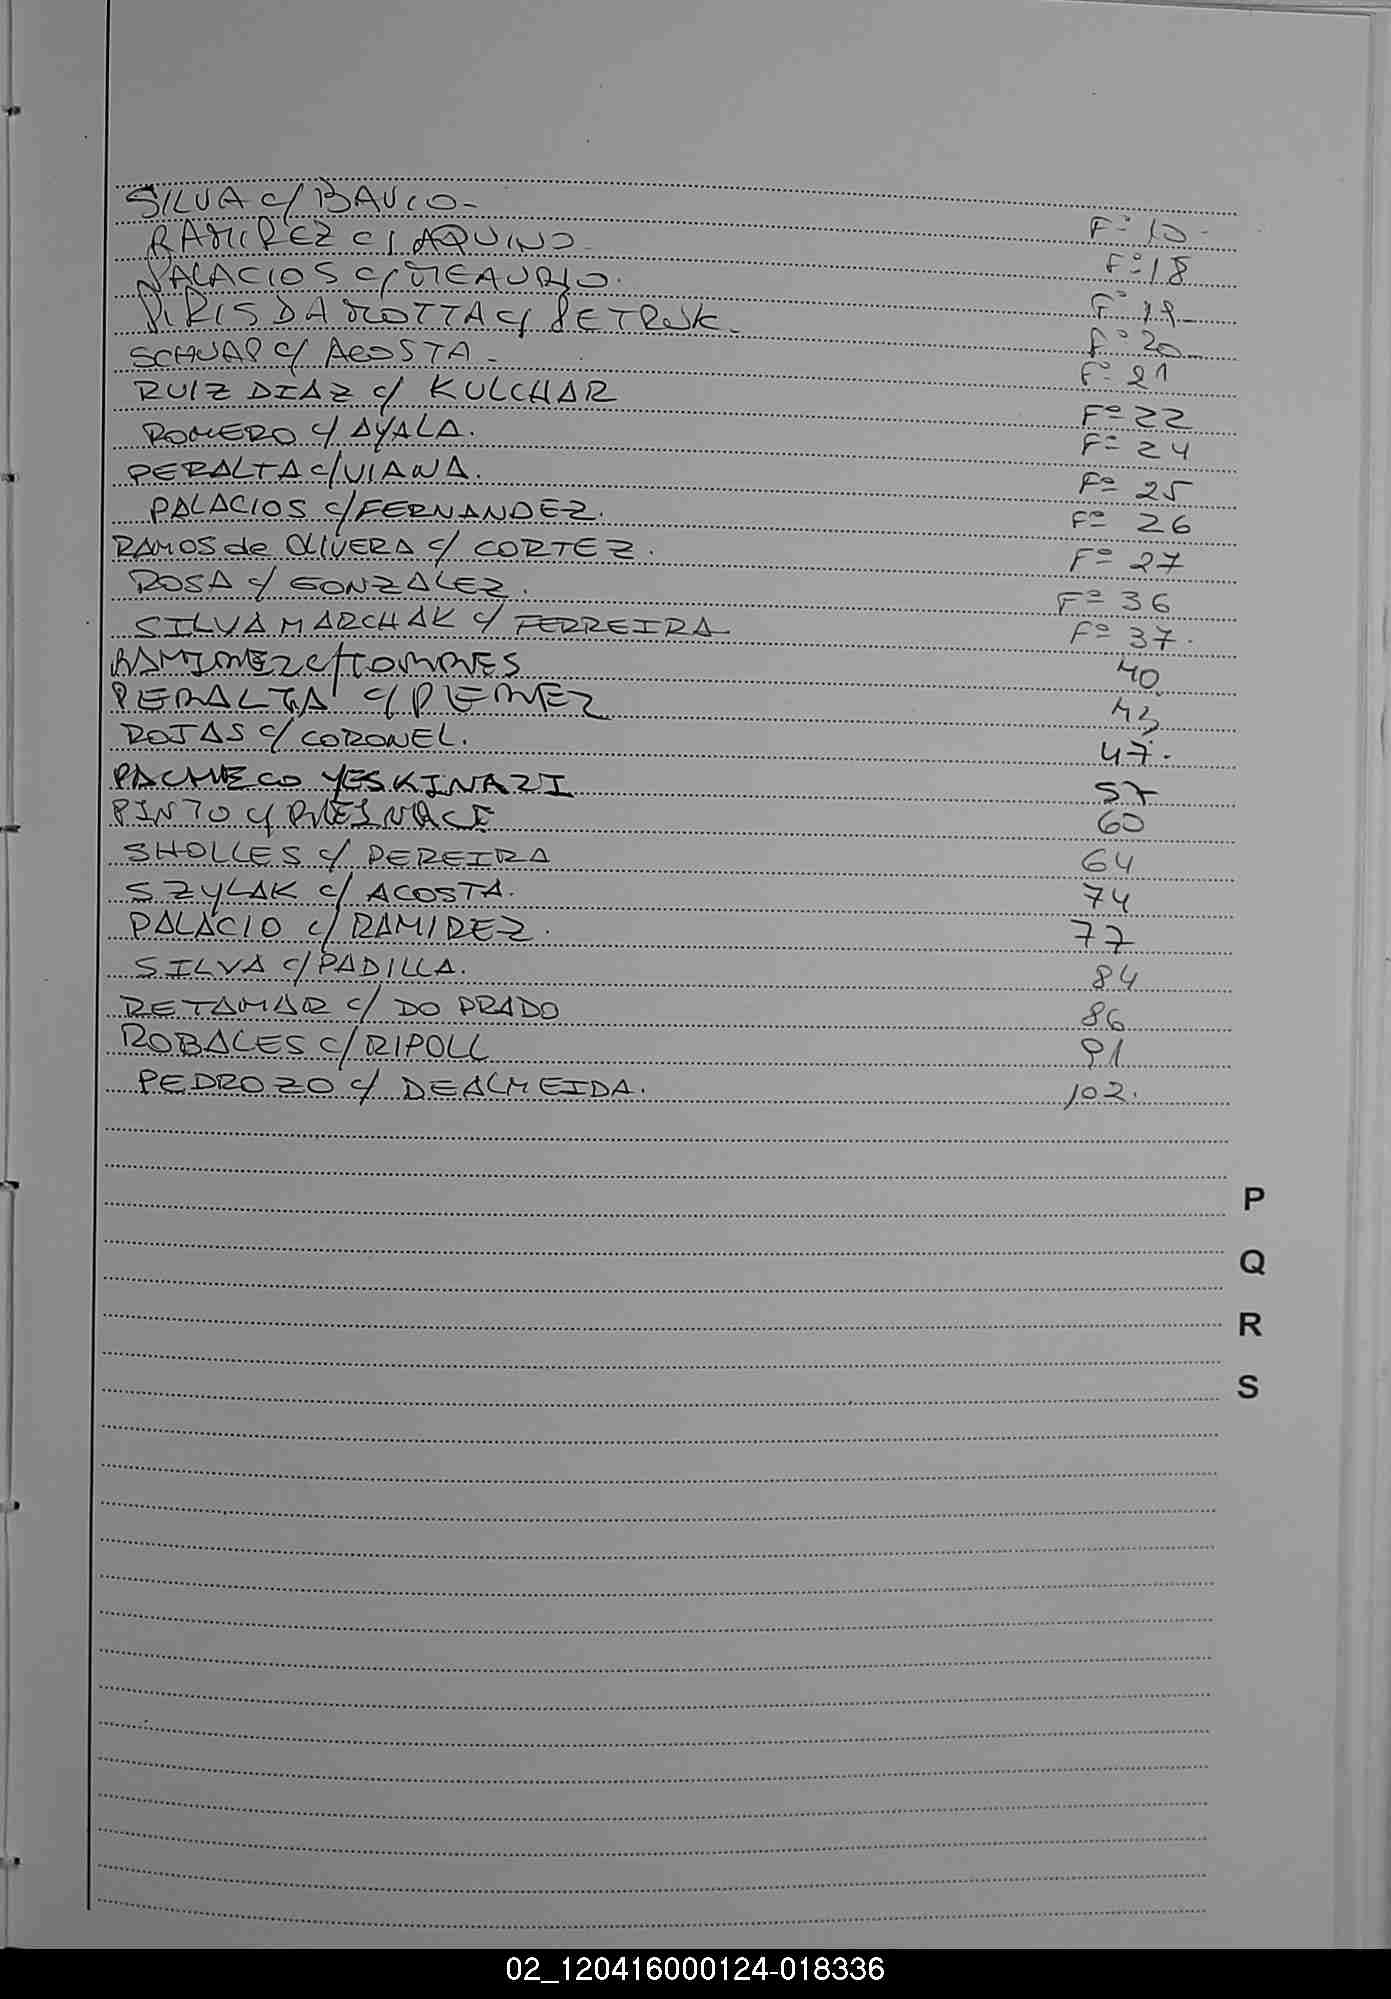 SILVA c/ BAUCO- F° 10-
RAMIREZ c/ AQUINO- F° 18
PALACIOS c/ MEAURIO. F° 19-
PIRIS DA MOTTA c/ PETRUK- F° 20-
SCHUAP c/ ACOSTA- F° 21
RUIZ DIAZ c/ KULCHAR F° 22
ROMERO c/ AYALA. F° 24
PERALTA c/ VIANA. F° 25
PALACIOS c/ FERNANDEZ. F° 26
RAMOS de OLIVERA c/ CORTEZ. F° 27
ROSA c/ GONZALEZ. F° 36
SILVA MARCHAK c/ FERREIRA F° 37.
RAMIREZ c/ TORRES 40
PERALTA c/ PEREZ 43
ROJAS c/ CORONEL. 47.
PACHECO YESKINAZI 57
PINTO c/ 60
SHOLLES c/ PEREIRA 64
SZYLAK c/ ACOSTA. 74
PALACIO c/ RAMIREZ. 77
SILVA c/ PADILLA. 84
RETAMAR c/ DO PRADO 86
ROBALES c/ RIPOLL 91
PEDROZO c/ DEALMEIDA. 102.
P
Q
R
S
02_120416000124-018336